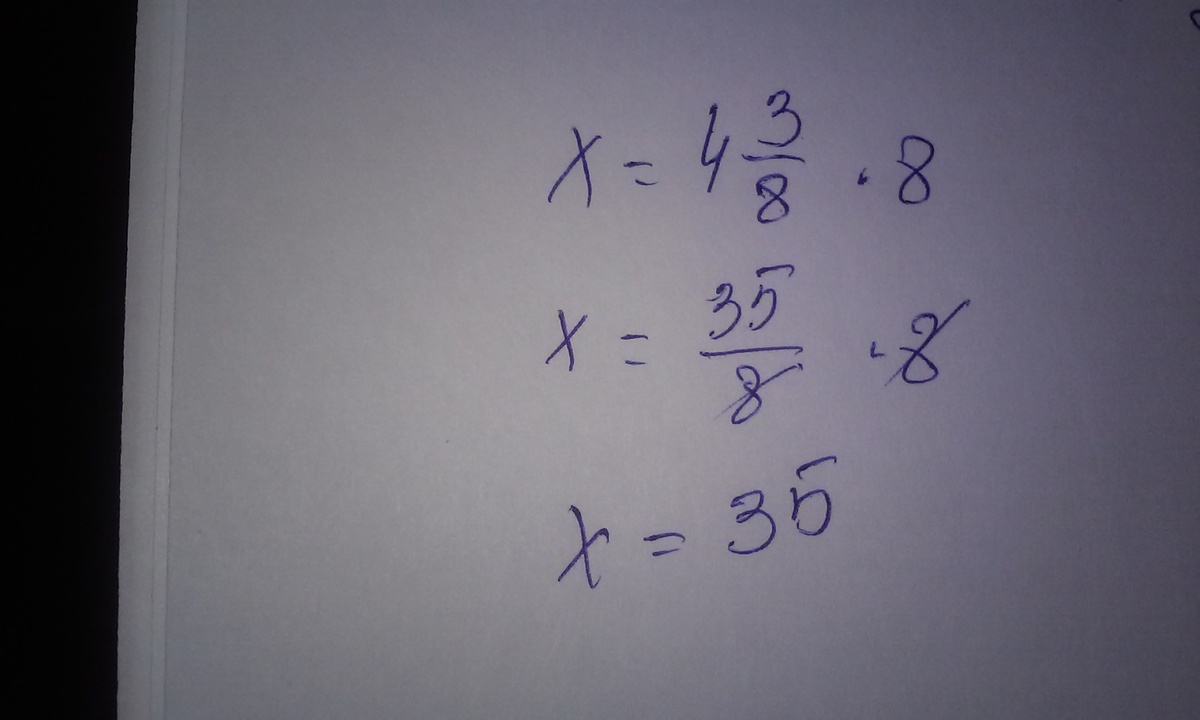 x = 4 3/8 · 8
x = 35/8 · 8
x = 35